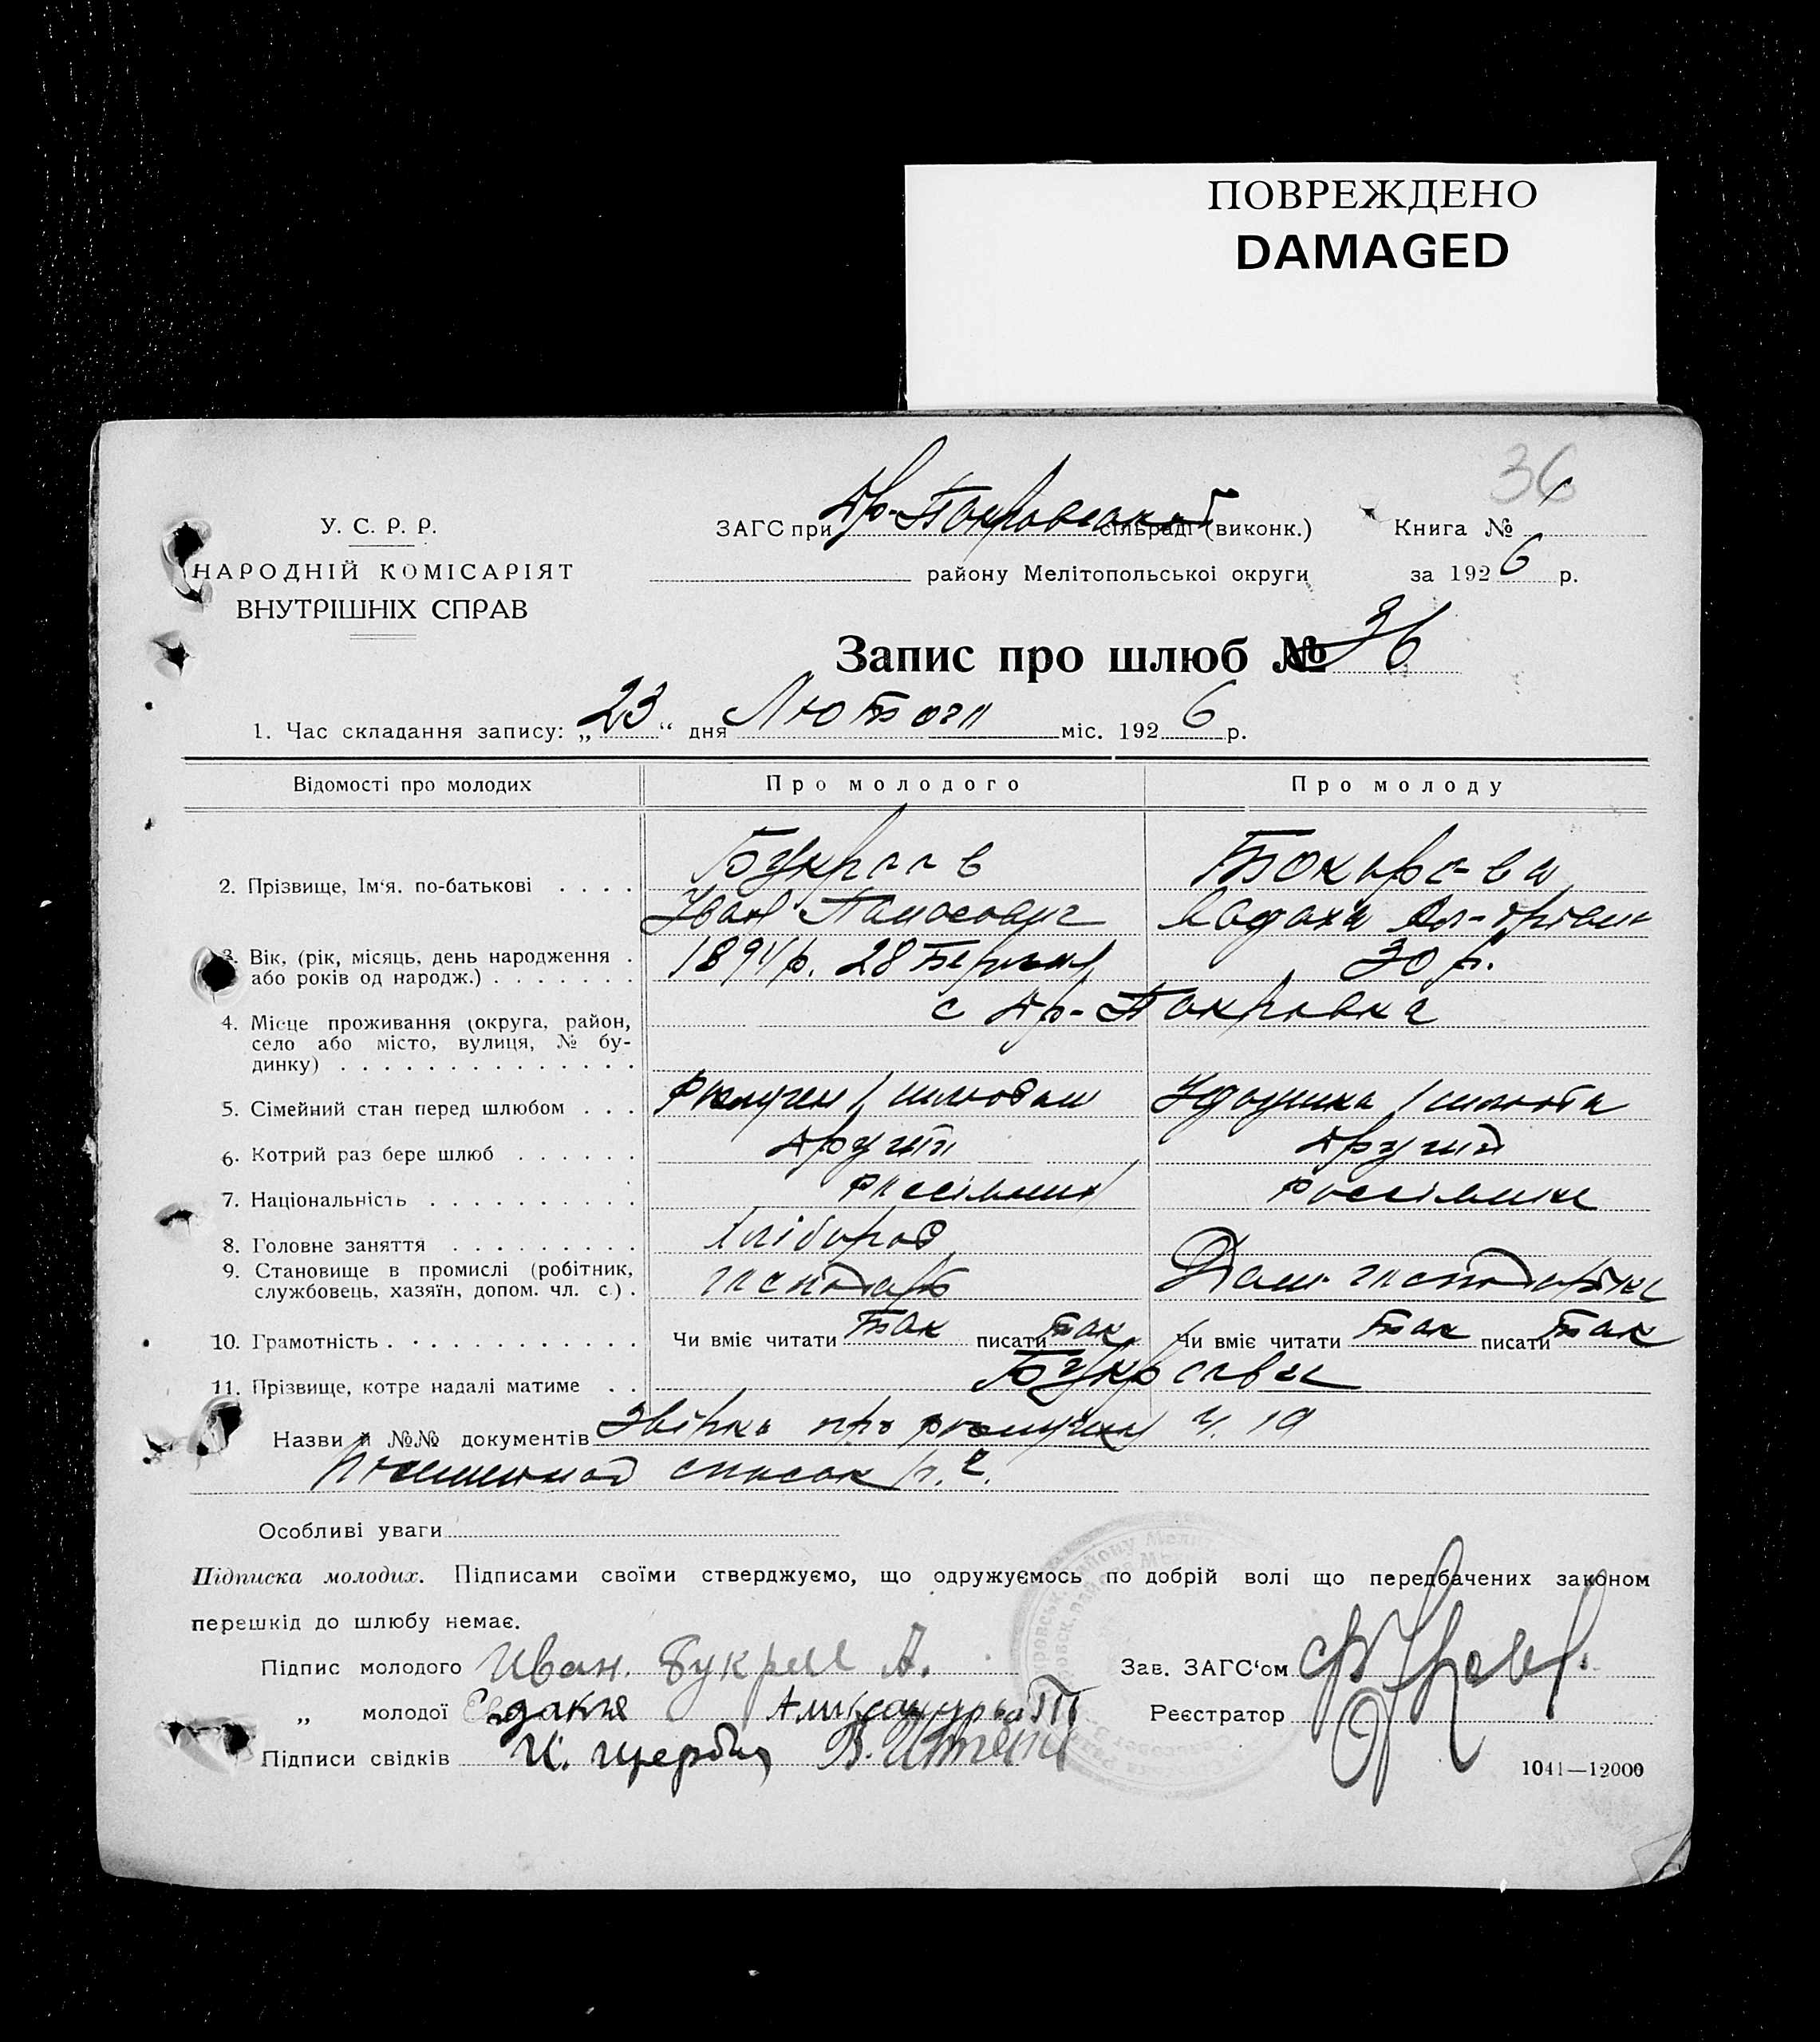 ПОВРЕЖДЕНО
DAMAGED
36
У. С. Р. Р.
НАРОДНІЙ КОМІСАРІЯТ
ВНУТРІШНІХ СПРАВ
ЗАГС при Др-Покровской сільраді (виконк.)
Книга №
району Мелітопольської округи
за 1926 р.
Запис про шлюб № 36
1. Час складання запису: „23“ дня Лютого міс. 1926 р.
Відомості про молодих
Про молодого
Про молоду
2. Прізвище, Ім‘я, по-батькові . . . .
Букреев
Токарева
Іван Панасович
3. Вік, (рік, місяць, день народження .
або років од народж.) . . . . . . .
1894р. 28
30 р.
4. Місце проживання (округа, район,
село або місто, вулиця, № бу-
динку) . . . . . . . . . . . . . .
с Др-Покровка
5. Сімейний стан перед шлюбом . . .
6. Котрий раз бере шлюб . . . . . .
Другий
Другий
7. Національність . . . . . . . . . .
8. Головне заняття . . . . . . . . .
Хлібороб
9. Становище в промислі (робітник,
службовець, хазяїн, допом. чл. с.) .
господарь
Дом. господарка
10. Грамотність . . . . . . . . . . . .
Чи вміє читати Так писати Так
Чи вміє читати Так писати Так
11. Прізвище, котре надалі матиме . .
Букреевы
Назви й №№ документів про ч. 19
список
Особливі уваги
Підписка молодих. Підписами своїми стверджуємо, що одружуємось по добрій волі що передбачених законом
перешкід до шлюбу немає.
Підпис молодого Иван. Букреев А.
Зав. ЗАГС‘ом
„ молодої
Реєстратор
Підписи свідків
1041—12000